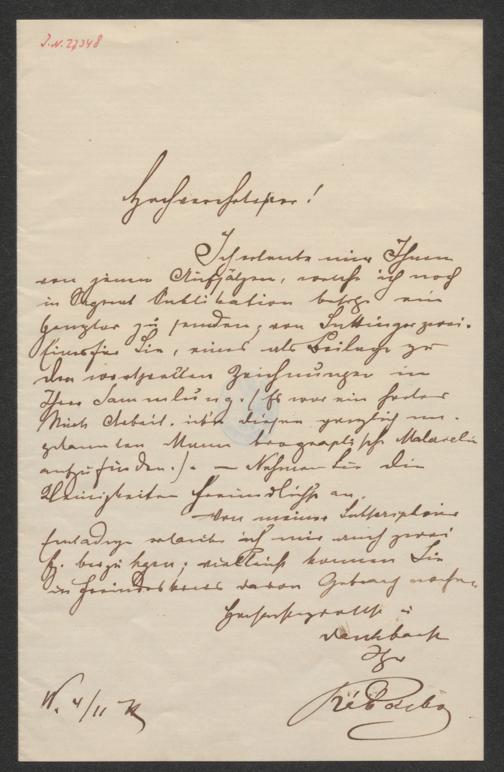 J.N. 27348
Hochverehrtester!
Ich erlaube mir Ihnen
von jenen Aufsätzen, welche ich noch
in Separat Publikation besitze ein
Exemplar zu senden; von
eines für Sie, eines als Beilage zu
den wertvollen Zeichnungen in
Ihrer Sammlung. (Es war ein hartes
Stück Arbeit, über diesen gänzlich un-
gekannten Mann biographische Materialien
aufzufinden.). — Nehmen Sie die
Kleinigkeiten freundlichst an.
Von meiner
Einladung erlaube ich mir auch zwei
Ex. beizulegen; vielleicht können Sie
in Freundeskreis davon Gebrauch machen.
Hochachtungsvollst u
dankbarst
Ihr
W. 4/11